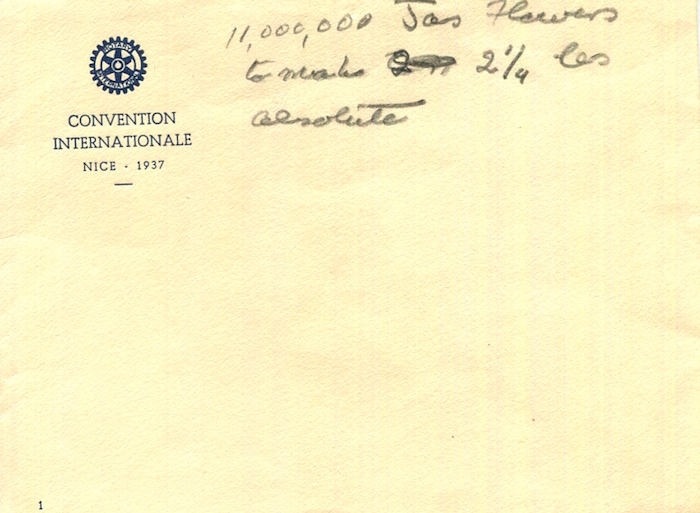 11,000,000 Jas Flowers
to make 2 1/4 lbs
absolute
ROTARY
INTERNATIONAL
CONVENTION
INTERNATIONALE
NICE - 1937
1